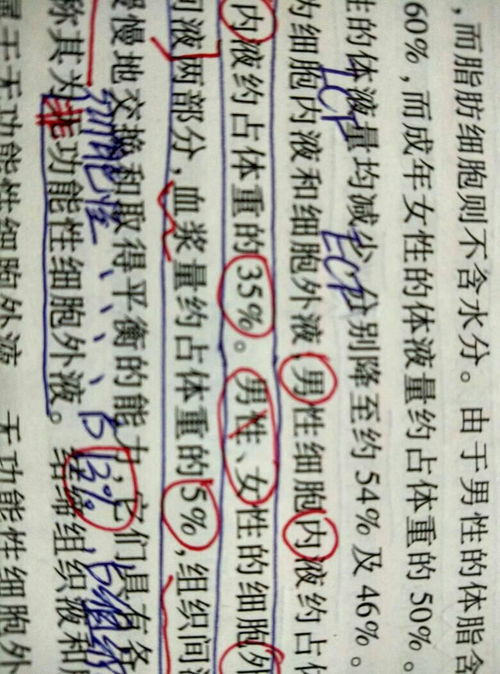 ,而脂肪细胞则不含水分。由于男性的体脂含
60%,而成年女性的体液量约占体重的50%。
性的体液量均减少,分别降至约54%及46%。
ICF ECF
为细胞内液和细胞外液,男性细胞内液约占
内液约占体重的35%。男性、女性的细胞外
间液两部分,血浆量约占体重的5%,组织间
慢地交换和取得平衡的能力,它们具有各
称其为无功能性细胞外液。结缔组织液和
属于无功能性细胞外液 无功能性细胞外